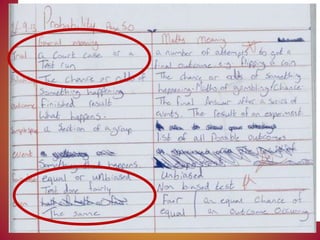 Probability Page 50
Normal meaning
Maths Meaning
Trial
a Court case or a
Test run
a number of attempts to get a
final outcome e.g. flipping a coin
The chance or odds of
Something happening
The chance or odds of something
happening. Maths of gambling/Chance
Outcome
Finished result
What happens.
The final Answer after a series of
events. The result of an experiment
Sample space
a Section of a group
list of all Possible outcomes
event
Something happens
equal or unbiased
Test done fairly
Unbiased
Non biased test
The Same
Fair / equal
an equal Chance of
an outcome Occuring